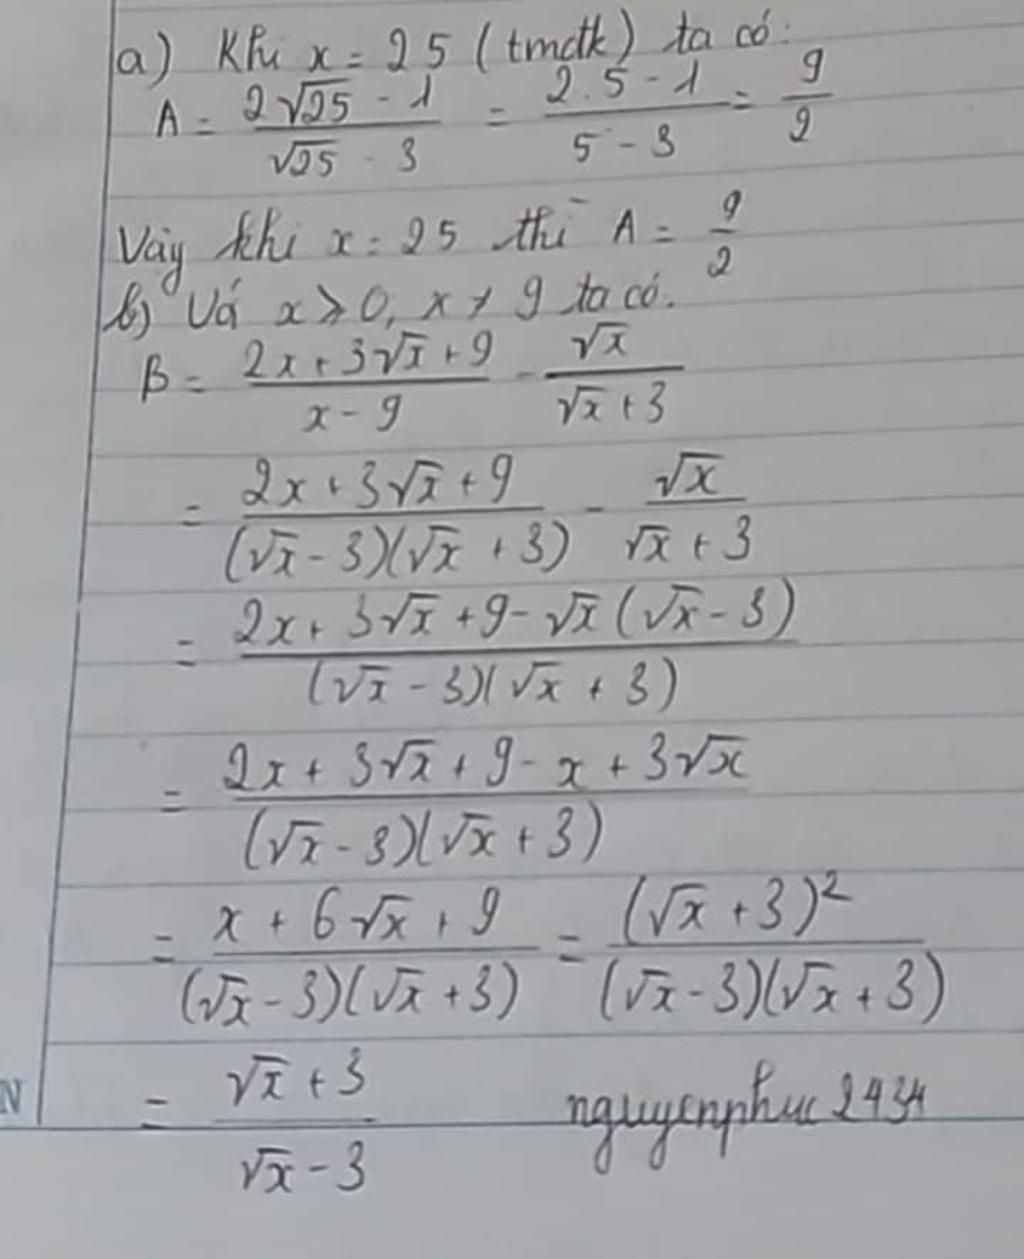 a) Khi x = 25 (tmdk) ta có:
A = (2√25 - 1)/(√25 - 3) = (2.5 - 1)/(5 - 3) = 9/2
Vậy khi x = 25 thì A = 9/2
b) Vá x ≥ 0, x ≠ 9 ta có.
B = (2x + 3√x + 9)/(x - 9) - √x/(√x + 3)
= (2x + 3√x + 9)/((√x - 3)(√x + 3)) - √x/(√x + 3)
= (2x + 3√x + 9 - √x(√x - 3))/((√x - 3)(√x + 3))
= (2x + 3√x + 9 - x + 3√x)/((√x - 3)(√x + 3))
= (x + 6√x + 9)/((√x - 3)(√x + 3)) = (√x + 3)²/((√x - 3)(√x + 3))
= (√x + 3)/(√x - 3)
nguyenphuc2434
N